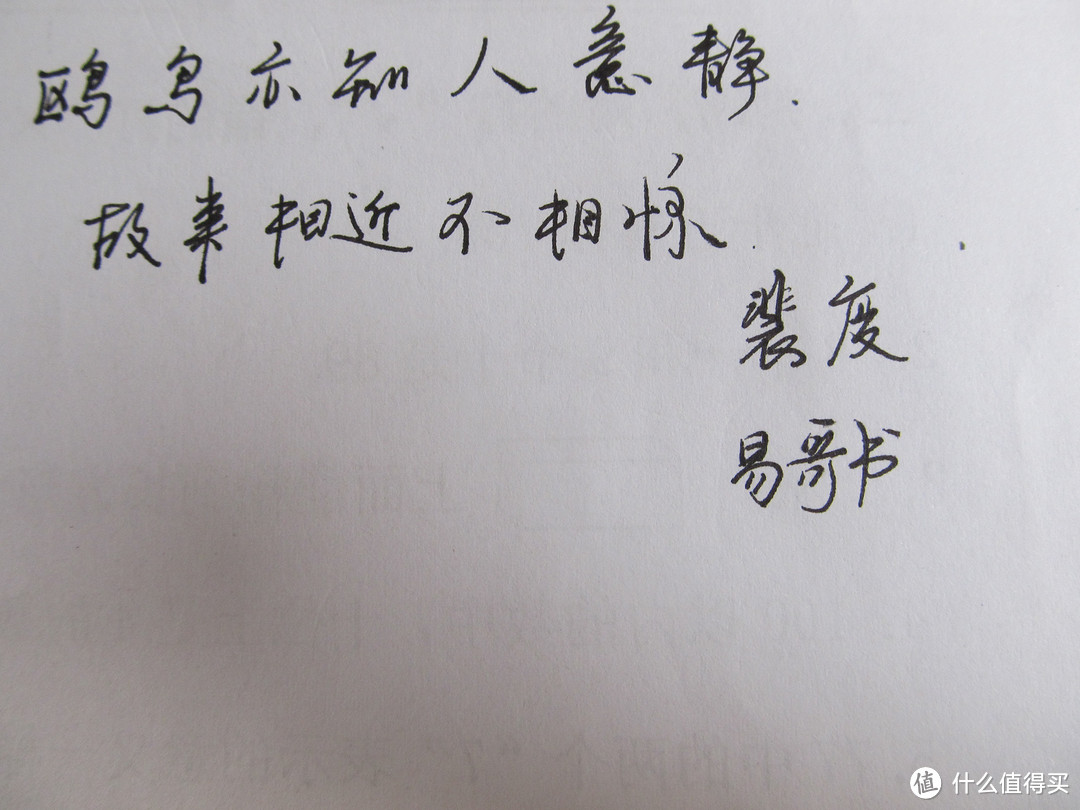 鸥鸟亦知人意静.
故来相近不相惊.
裴度
易哥书
值 什么值得买